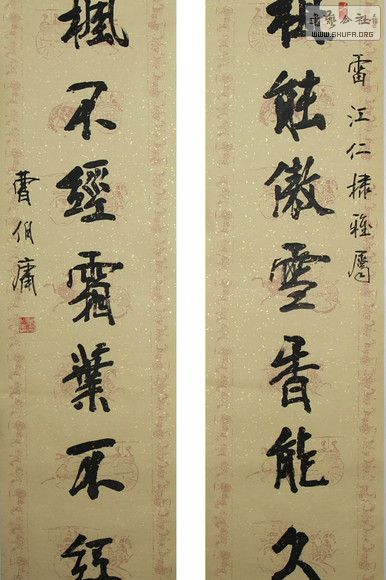 書藝公社
WWW.SHUFA.ORG
雷江仁棣雅屬
能傲雪香能久
楓不經霜葉不紅
曹伯庸